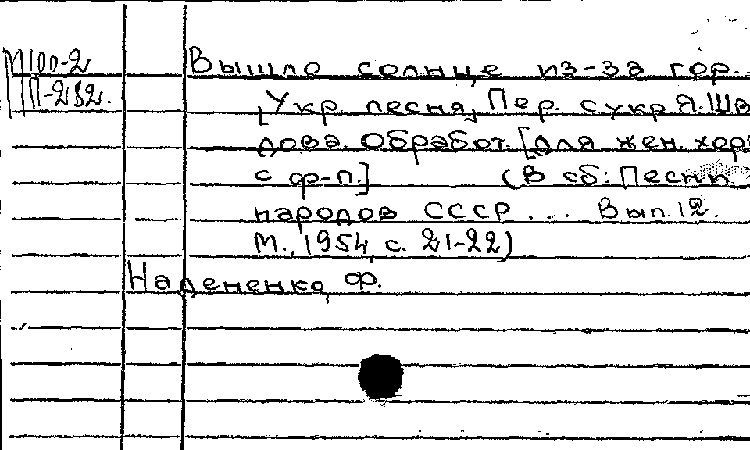 М100-2
П-232.
Вышло солнце из-за гор.
[Укр. песня, Пер. с укр. Я. Шве
дова. Обработ. [для жен. хора
с ф-п.] (В сб.: Песни
народов СССР ... Вып. 12.
М., 1954, с. 21-22)
Надененко, Ф.